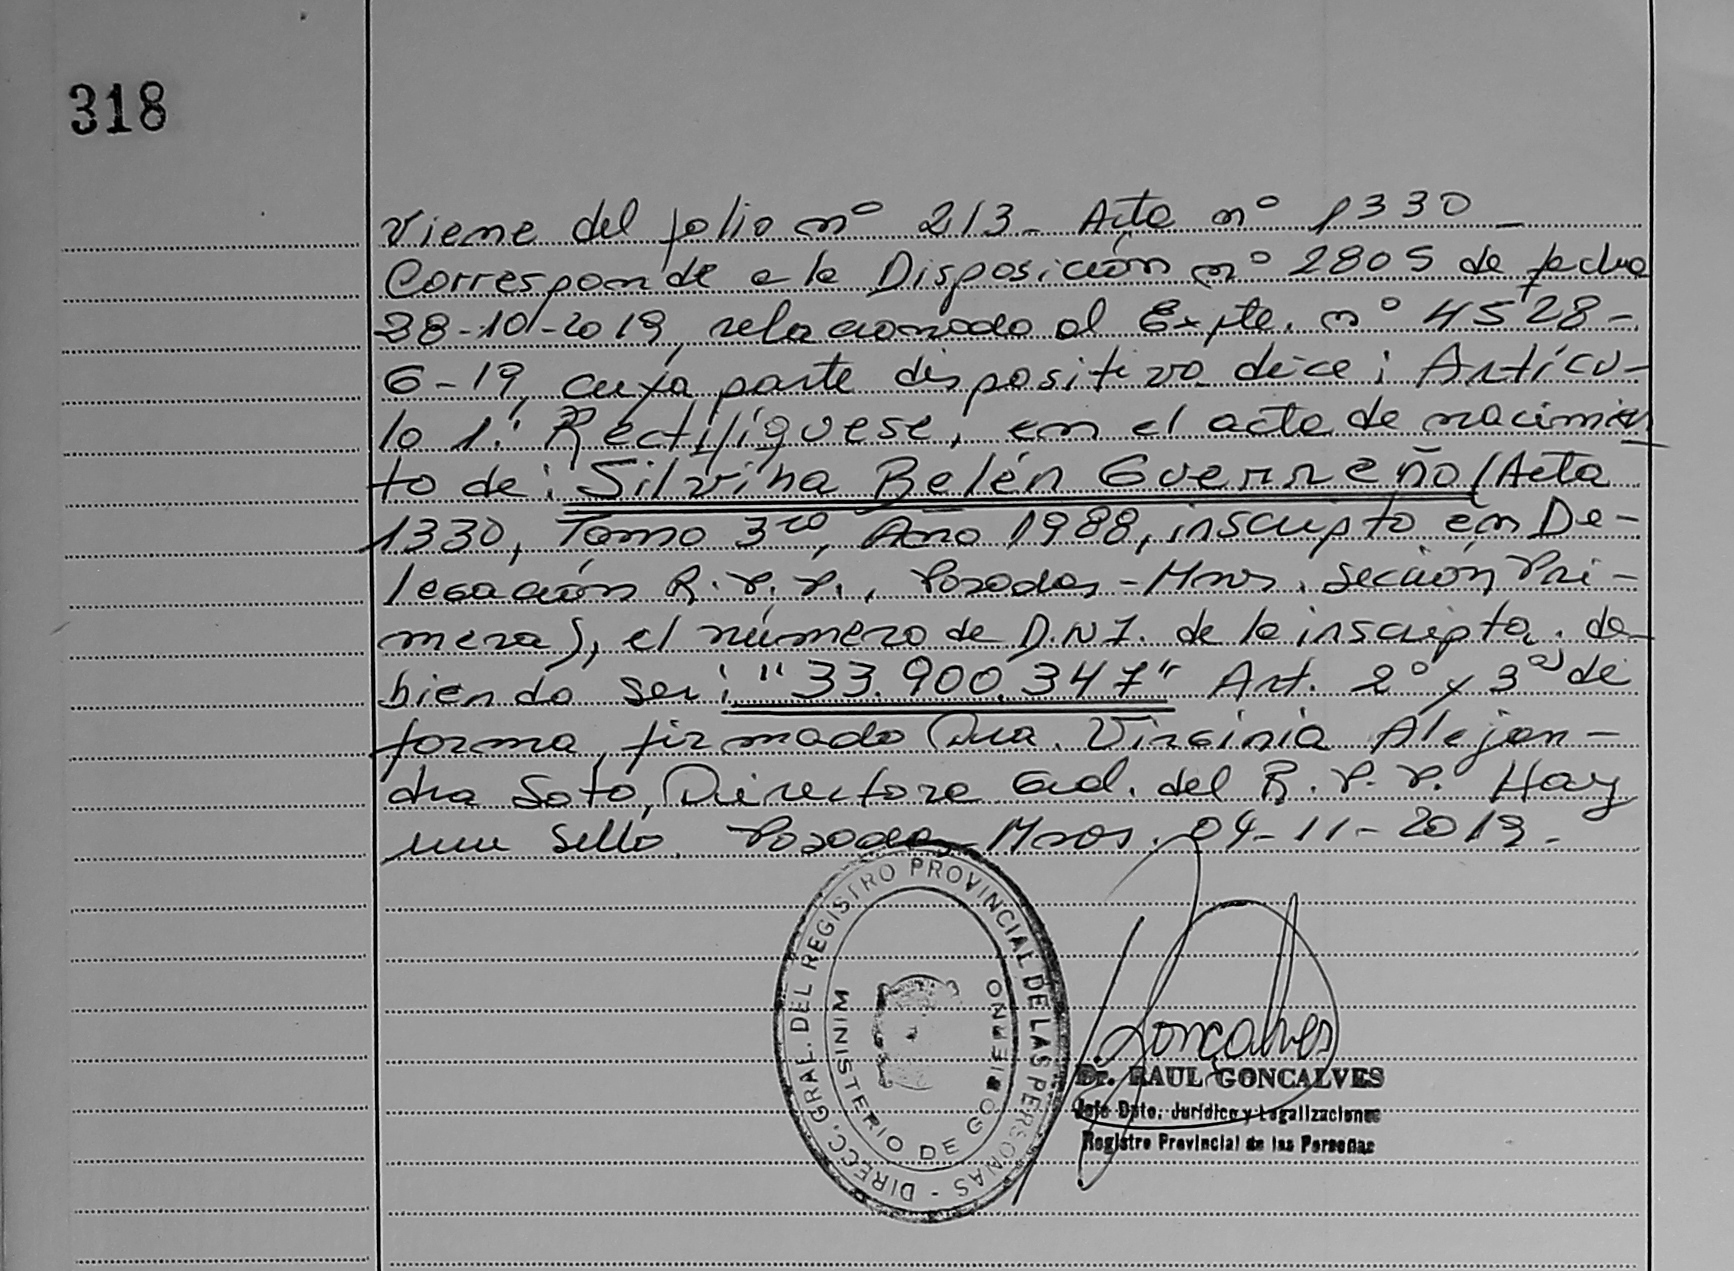 318
Viene del folio nº 213_ Acta nº 1330_
Corresponde a la Disposición nº 2805 de fecha
28-10-2019, relacionado al Expte. nº 4528-
G-19, cuya parte dispositiva dice: Artícu-
lo 1.: Rectifíquese, en el acta de nacimien
to de: Silvina Belén Guerreño (Acta
1330, Tomo 3ro, Año 1988, inscripto en De-
legación R.P.P., Posadas-Mnes. Sección Pri-
mera), el número de D.N.I. de la inscripta. de-
biendo ser: "33.900.347" Art. 2º y 3º de
forma, firmado Dra. Virginia Alejan-
dra Soto, Directora Gral. del R.P.P. Hay
un sello. Posadas-Mnes. 04-11-2019.-
DIRECC. GRAL. DEL REGISTRO PROVINCIAL DE LAS PERSONAS -
MINISTERIO DE GOBIERNO
Goncalves
Dr. RAUL GONCALVES
Jefe Dpto. Jurídico y Legalizaciones
Registro Provincial de las Personas